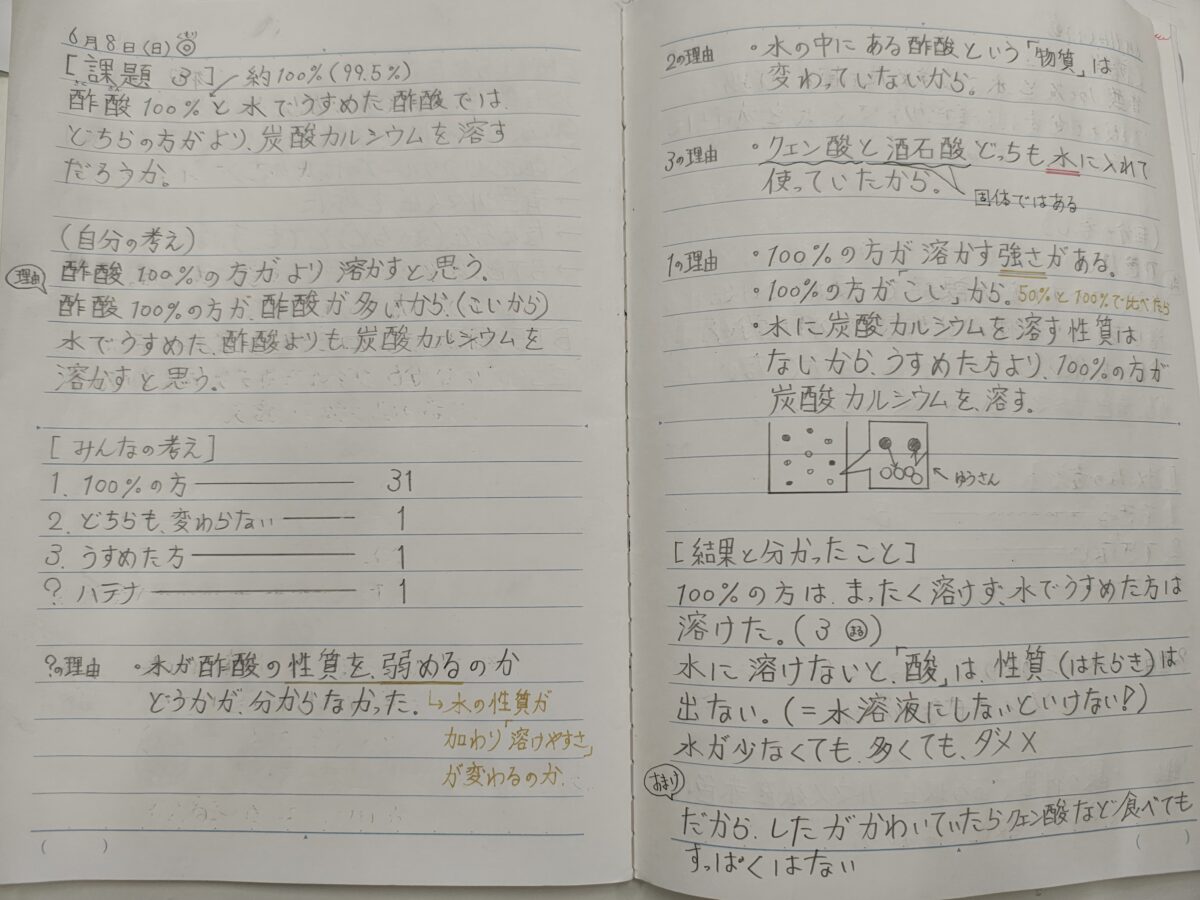 6月8日(日)
[課題 3] 約100%(99.5%)
酢酸100%と水でうすめた酢酸では
どちらの方がより、炭酸カルシウムを溶す
だろうか。
(自分の考え)
酢酸100%の方がより溶かすと思う。
理由
酢酸100%の方が、酢酸が多いから、(こいから)
水でうすめた、酢酸よりも、炭酸カルシウムを
溶かすと思う。
[みんなの考え]
1. 100%の方 31
2. どちらも、変わらない 1
3. うすめた方 1
? ハテナ 1
?の理由 ・水が酢酸の性質を、弱めるのか
どうかが、分からなかった。
↳水の性質が
加わり「溶けやすさ」
が変わるのか.
2の理由 ・水の中にある酢酸という「物質」は
変わっていないから。
3の理由 ・クエン酸と酒石酸どっちも水に入れて
使っていたから。
固体ではある
1の理由 ・100%の方が溶かす強さがある。
・100%の方が「こい」から。50%と100%で比べたら
・水に炭酸カルシウムを溶す性質は
ないから、うすめた方より、100%の方が
炭酸カルシウムを、溶す。
ゆうさん
[結果と分かったこと]
100%の方は、まったく溶けず、水でうすめた方は
溶けた。(3 まる)
水に溶けないと、「酸」は、性質(はたらき)は
出ない。(=水溶液にしないといけない!)
水が少なくても、多くても、ダメ×
あまり
だから、したがかわいていたらクエン酸など食べても
すっぱくはない